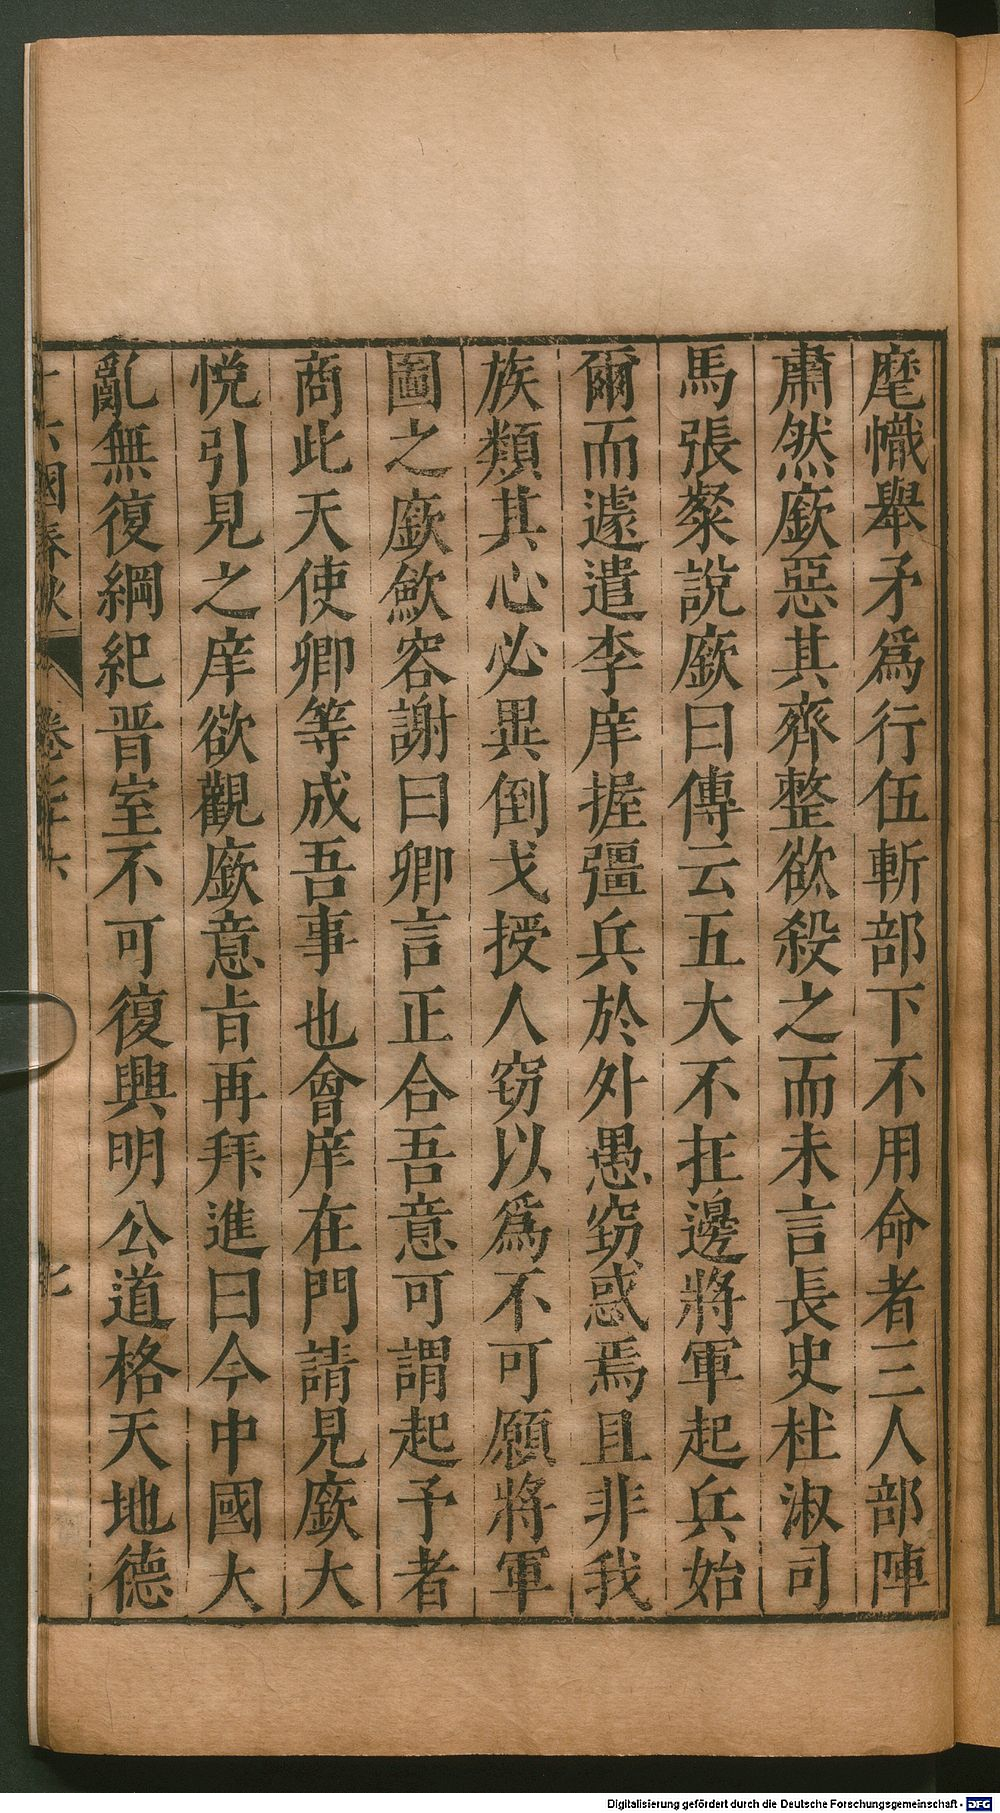 麾幟舉矛爲行伍斬部下不用命者三人部陣
肅然廞惡其齊整欲殺之而未言長史杜淑司
馬張粲說廞曰傳云五大不在邊將軍起兵始
爾而遽遣李庠握彊兵於外愚竊惑焉且非我
族類其心必異倒戈授人窃以爲不可願將軍
圖之廞歛容謝曰卿言正合吾意可謂起予者
商此天使卿等成吾事也會庠在門請見廞大
悅引見之庠欲觀廞意㫖再拜進曰今中國大
亂無復綱紀晋室不可復興明公道格天地德
十六國春秋 卷七十六 七
Digitalisierung gefördert durch die Deutsche Forschungsgemeinschaft - DFG